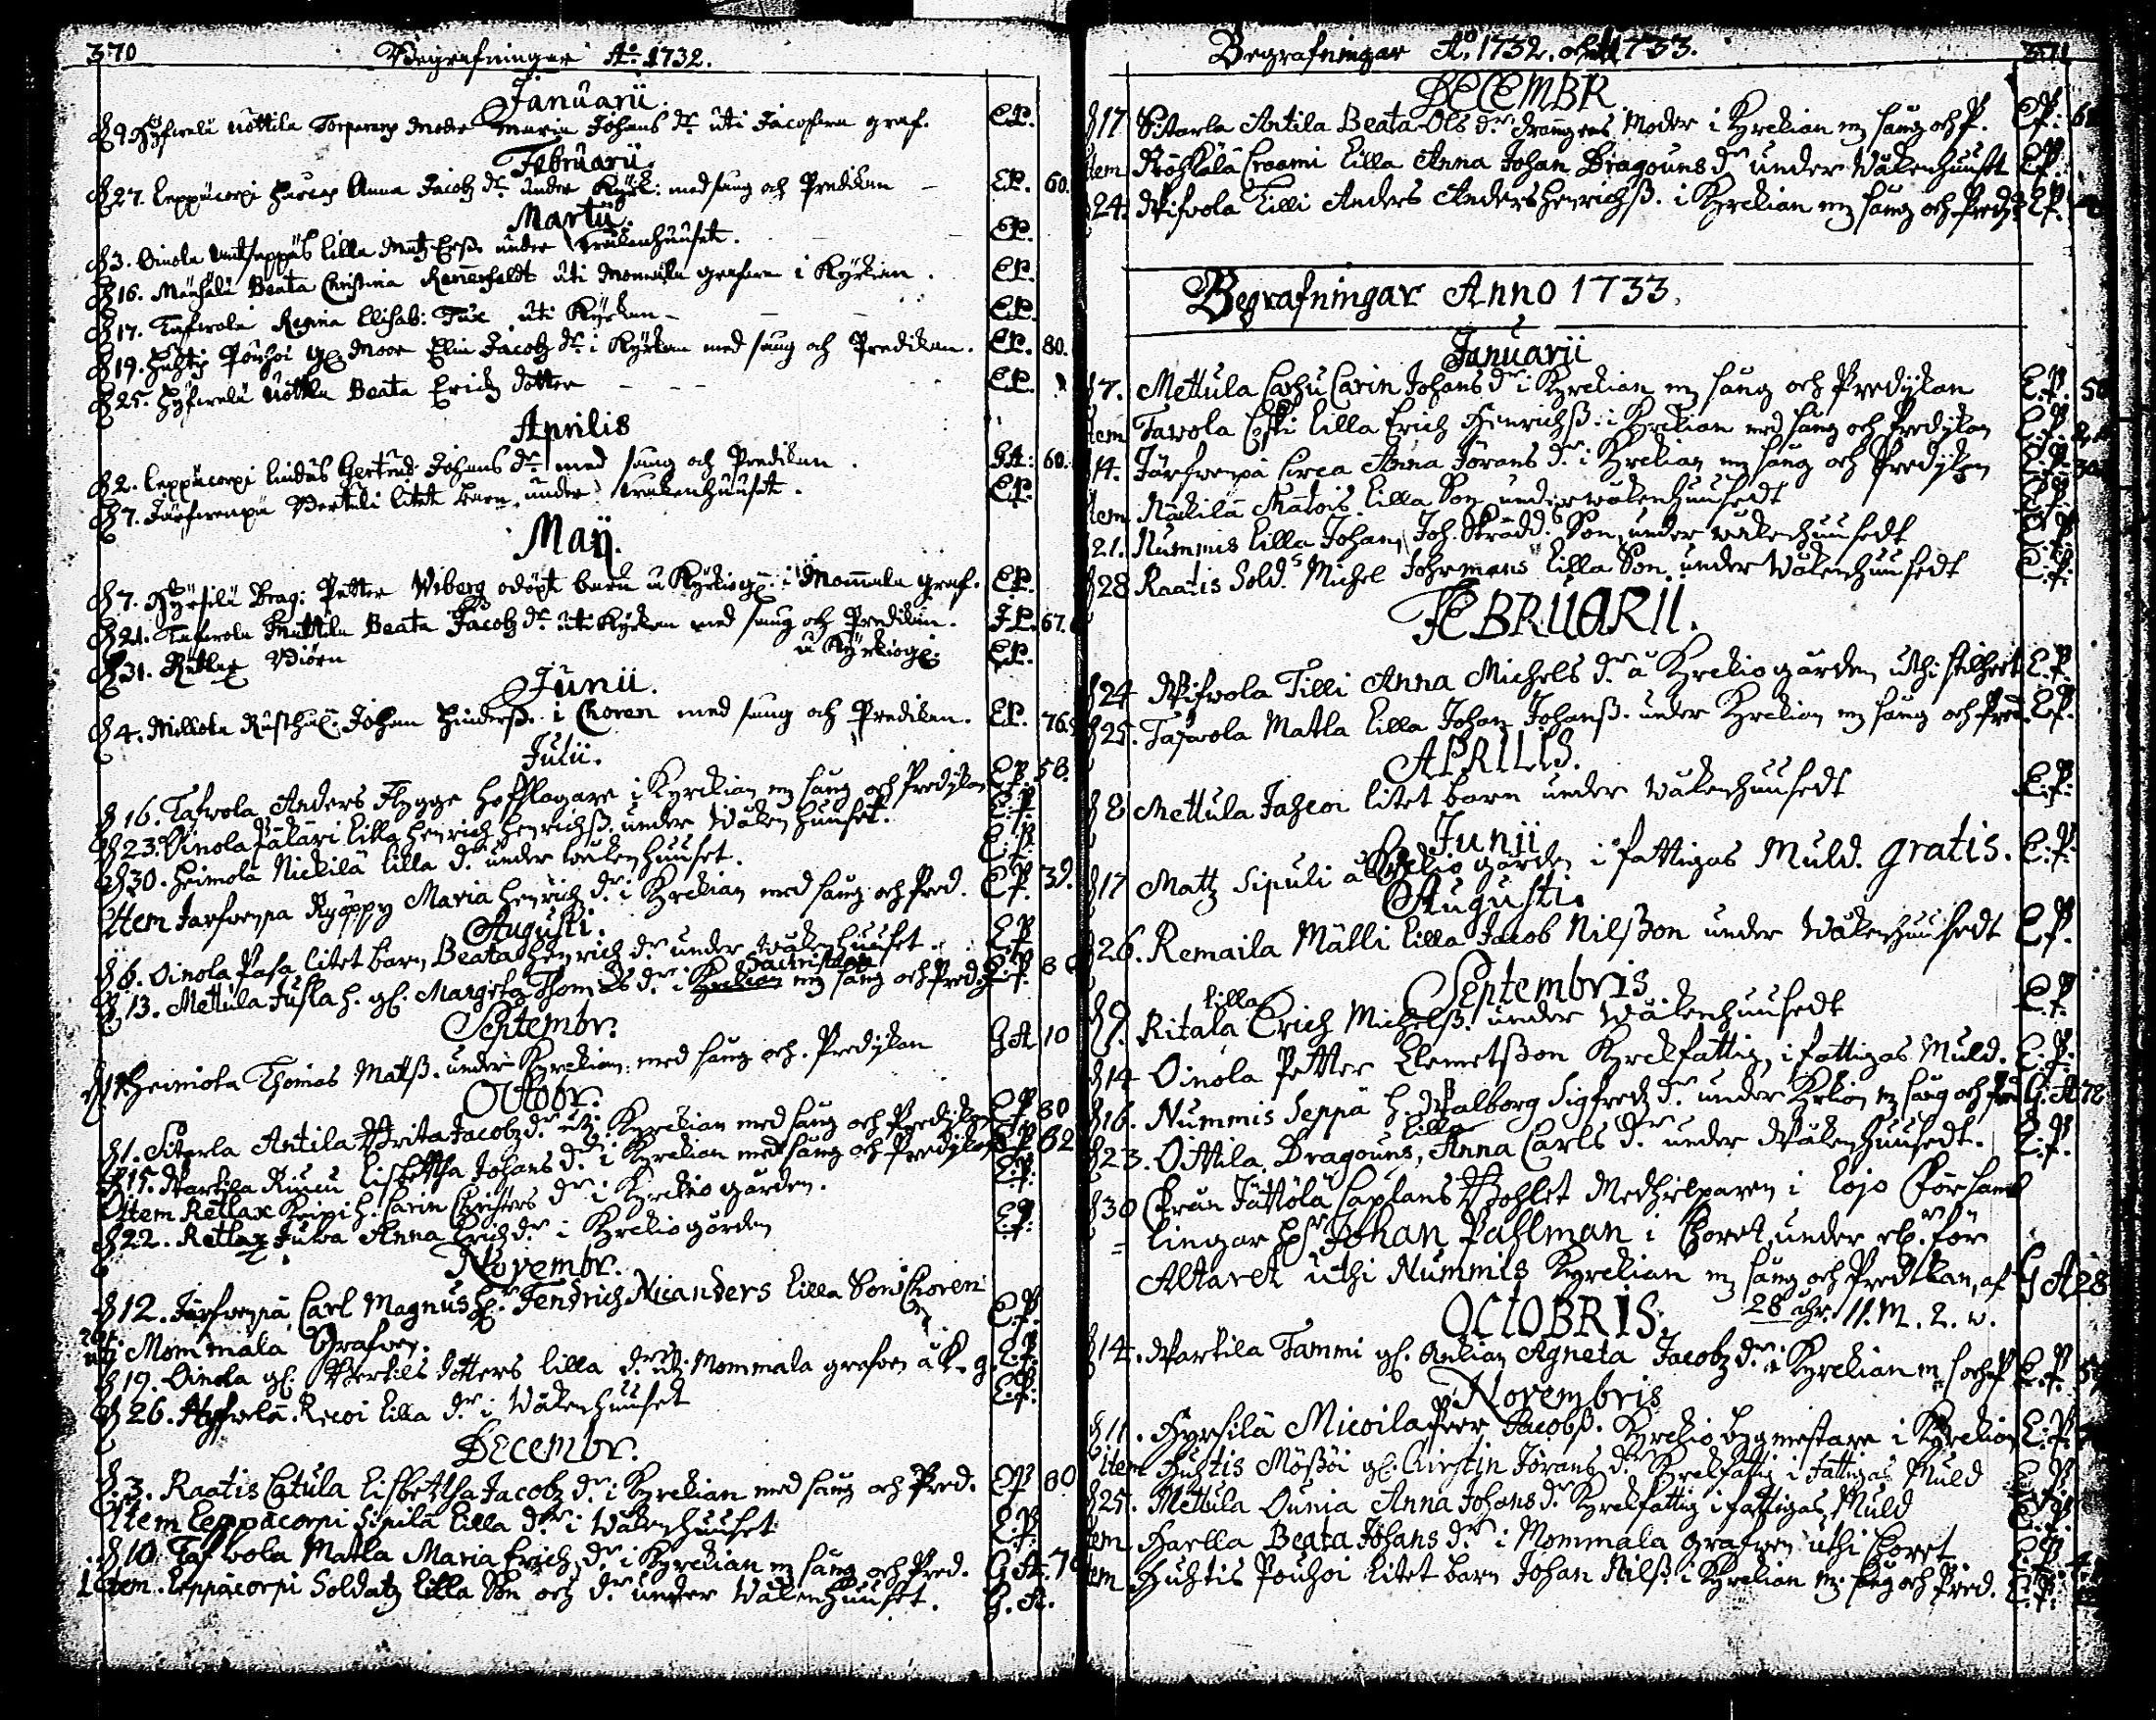 370 Begrafningar Ao 1732.
Januarii.
d 9. Hyfwelä Uottila Torparens Moder Maria Johans dr uti Jacofwa graf. E.P.
Februarii.
d 27. Leppäcorpi Anna Jacobz dr under Kyrk: med sång och Predikan – E.P. 60.
Martii.
d 3. Oinola lilla Matz Erss. under wåkenhuuset. – – E.P.
d 16. Mänsälä Beata Christina Rennerfeldt uti Mommila grafwen i Kyrkian. E.P.
d 17. Tafwola Regina Elisab: Tux uti Kyrkan – – – E.P.
d 19. Huhtis Pouhoi gl. Moor Elin Jacobz dr i Kyrkan med sång och Predikan. E.P. 80.
d 25. Hyfwelä Uottila Beata Erichz dotter – – – E.P.
Aprilis
d 2. Leppäcorpi Lindus Gertrud Johans dr med sång och Predikan. G.A: 60.
d 7. Järfwenpä Bertuli litet barn under wåkenhuuset. E.P.
Maij.
d 7. Hyrsilä Drag: Petter Wiberg odöpt barn å Kyrkiog: i Mommala graf. E.P.
d 21. Tafwola Mattila Beata Jacobz dr uti Kyrkan med sång och Predikan. J.P. 67.
d 31. Retlax Biörn å Kyrkiog: E.P.
Junii.
d 4. Millola Rusthål: Johan Hinderss. i Choren med sång och Predikan. E.P. 76.
Julii.
d 16. Tafwola Anders Flygge Hofslagare i Kyrckian m sång och Predikan E.P. 58.
d 23. Oinola Pälärä lilla Henrich Henrichss. under Wåkenhuuset. E.P.
d 30. Heimola Nickilä lilla dr under wåkenhuuset. E.P.
Item Jarfwenpa Ryöppy Maria Henrich dr i Kyrckian med sång och Pred. E.P. 39.
Augusti.
d 6. Oinola Pasa litet barn Beata Henrich dr under Wåkenhuuset. E.P.
Sacristian
d 13. Mettula Jusla h. gl. Margeta Thomas dr i Kyrckian m sång och Pred. E.P.
Septembr.
Heimola Thomas Matss. under Kyrckian med sång och Predikan G A 10
Octobr.
d 1. Sitarla Antila Brita Jacobz dr uti Kyrckian med sång och Predikan E P 80
d 15. Wartila Ruucu Lisbettha Johans dr i Kyrckian med sång och Predikan E P 62
Item Retlax Knipi h. Carin Christers dr i Kyrckio gården. E.P.
d 22. Retlax Juwa Anna Erich dr i Kyrckio gården E.P.
Novembr.
d 12. Järfwenpä Carl Magnus hr Fendrich Nicanders lilla Son i Choren
uti Mommala Grafwen. E.P.
d 19. Oinola gl: Bertils dotters lilla dr uti Mommala grafwen å K. g. E.P.
d 26. Hyfwelä Recoi lilla dr i Wåkenhuuset E.P.
Decembr.
d. 3. Raatis Catula Lisbettha Jacobz dr i Kyrckian med sång och Pred. E P 80
Item Leppäcorpi Sipilä lilla dr i Wåkenhuuset E.P.
d 10 Tafwola Matla Maria Erich dr i Kyrckian m sång och Pred. G A.
Item. Leppäcorpi Soldatz lilla Son och dr under Wåkenhuuset. G. A.
Begrafningar Ao 1732. och 1733. 371
DECEMBR
d 17 Sitarla Antila Beata Ols dr drängens Moder i Kyrckian m sång och P. E.P:
Item Röhkälä Craami lilla Anna Johan Dragouns dr under Wåkenhuuset E.P.
24. Wifvola Tilli Anders Anders Henrichss. i Kyrckian m sång och Pred. E.P.
Begrafningar Anno 1733.
Januarii
d 7. Mettula Carhu Carin Johans dr i Kyrckian m sång och Predikan E.P. 50
Item Tawola Coski lilla Erich Henrichss. i Kyrckian med sång och Predikan E.P.
d 14. Järfwenpä Circa Anna Jörans dr i Kyrckian m sång och Predikan E.P. 30
Item Näckilä Matois lilla Son under wåkenhuusedt E.P.
21. Nummis lilla Johan, Joh. Skrädd.s Son, under wåkenhuusedt E.P.
d 28 Raatis Sold.s Michel Fohrmans lilla Son under Wåkenhuusedt E.P.
FEBRUARII.
d 24 Wifvola Tilli Anna Michels dr å Kyrckio gården uthi stilhet E.P.
d 25. Tafwola Matla lilla Johan Johanss. under Kyrckian m sång och Pred. E.P.
APRILIS.
d 8 Mettula Jaheoi litet barn under Wåkenhuusedt E.P.
Junii
d 17 Mattz Sipuli å Kyrckio gården i fattigas Muld. gratis. E.P.
Augusti.
d 26. Remaila Mälli lilla Jacob Nilsson under Wåkenhuusedt E.P.
Septembris
lilla
d 9. Ritala Erich Michelss. under Wåkenhuusedt E.P.
d 14 Oinola Petter Clemetsson Kyrckfattig, i fattigas Muld. E.P.
d 16. Nummis Seppä h. Walborg Sigfredz dr under Kyrckian m sång och Pred. G.A 72
lilla
d 23. Oittila Dragouns, Anna Carls dr under Wåkenhuusedt. E.P.
d 30 Ifrån Jättölä Caplans Bohlet Medhielparen i Lojo Försam
lingar hr Johan Pallman i Choret under för
Altaret uthi Nummis Kyrckian m sång och Predikan, af G A 28
28 ahr. 11. M. 2. w.
OCTOBRIS.
d 14. Wartila Tammi gl. Änkian Agneta Jacobz dr i Kyrckian m s och P E.P.
Novembris
d 11. Hyrsilä Micoila Peer Jacobss. Kyrckio bygmestare i Kyrckian E.P.
Item Huhtis Mössöi gl: Kirstin Jörans dr Kyrckfattig i Fattigas Muld E.P.
d 25. Mettula Ounia Anna Johans dr Kyrckfattig i fattigas Muld E.P.
Item Harlla Beata Johans dr i Mommala grafwen uthi Choret E.P.
Item Huhtis Pouhoi litet barn Johan Nilss. i Kyrckian m. sång och Pred. E.P.